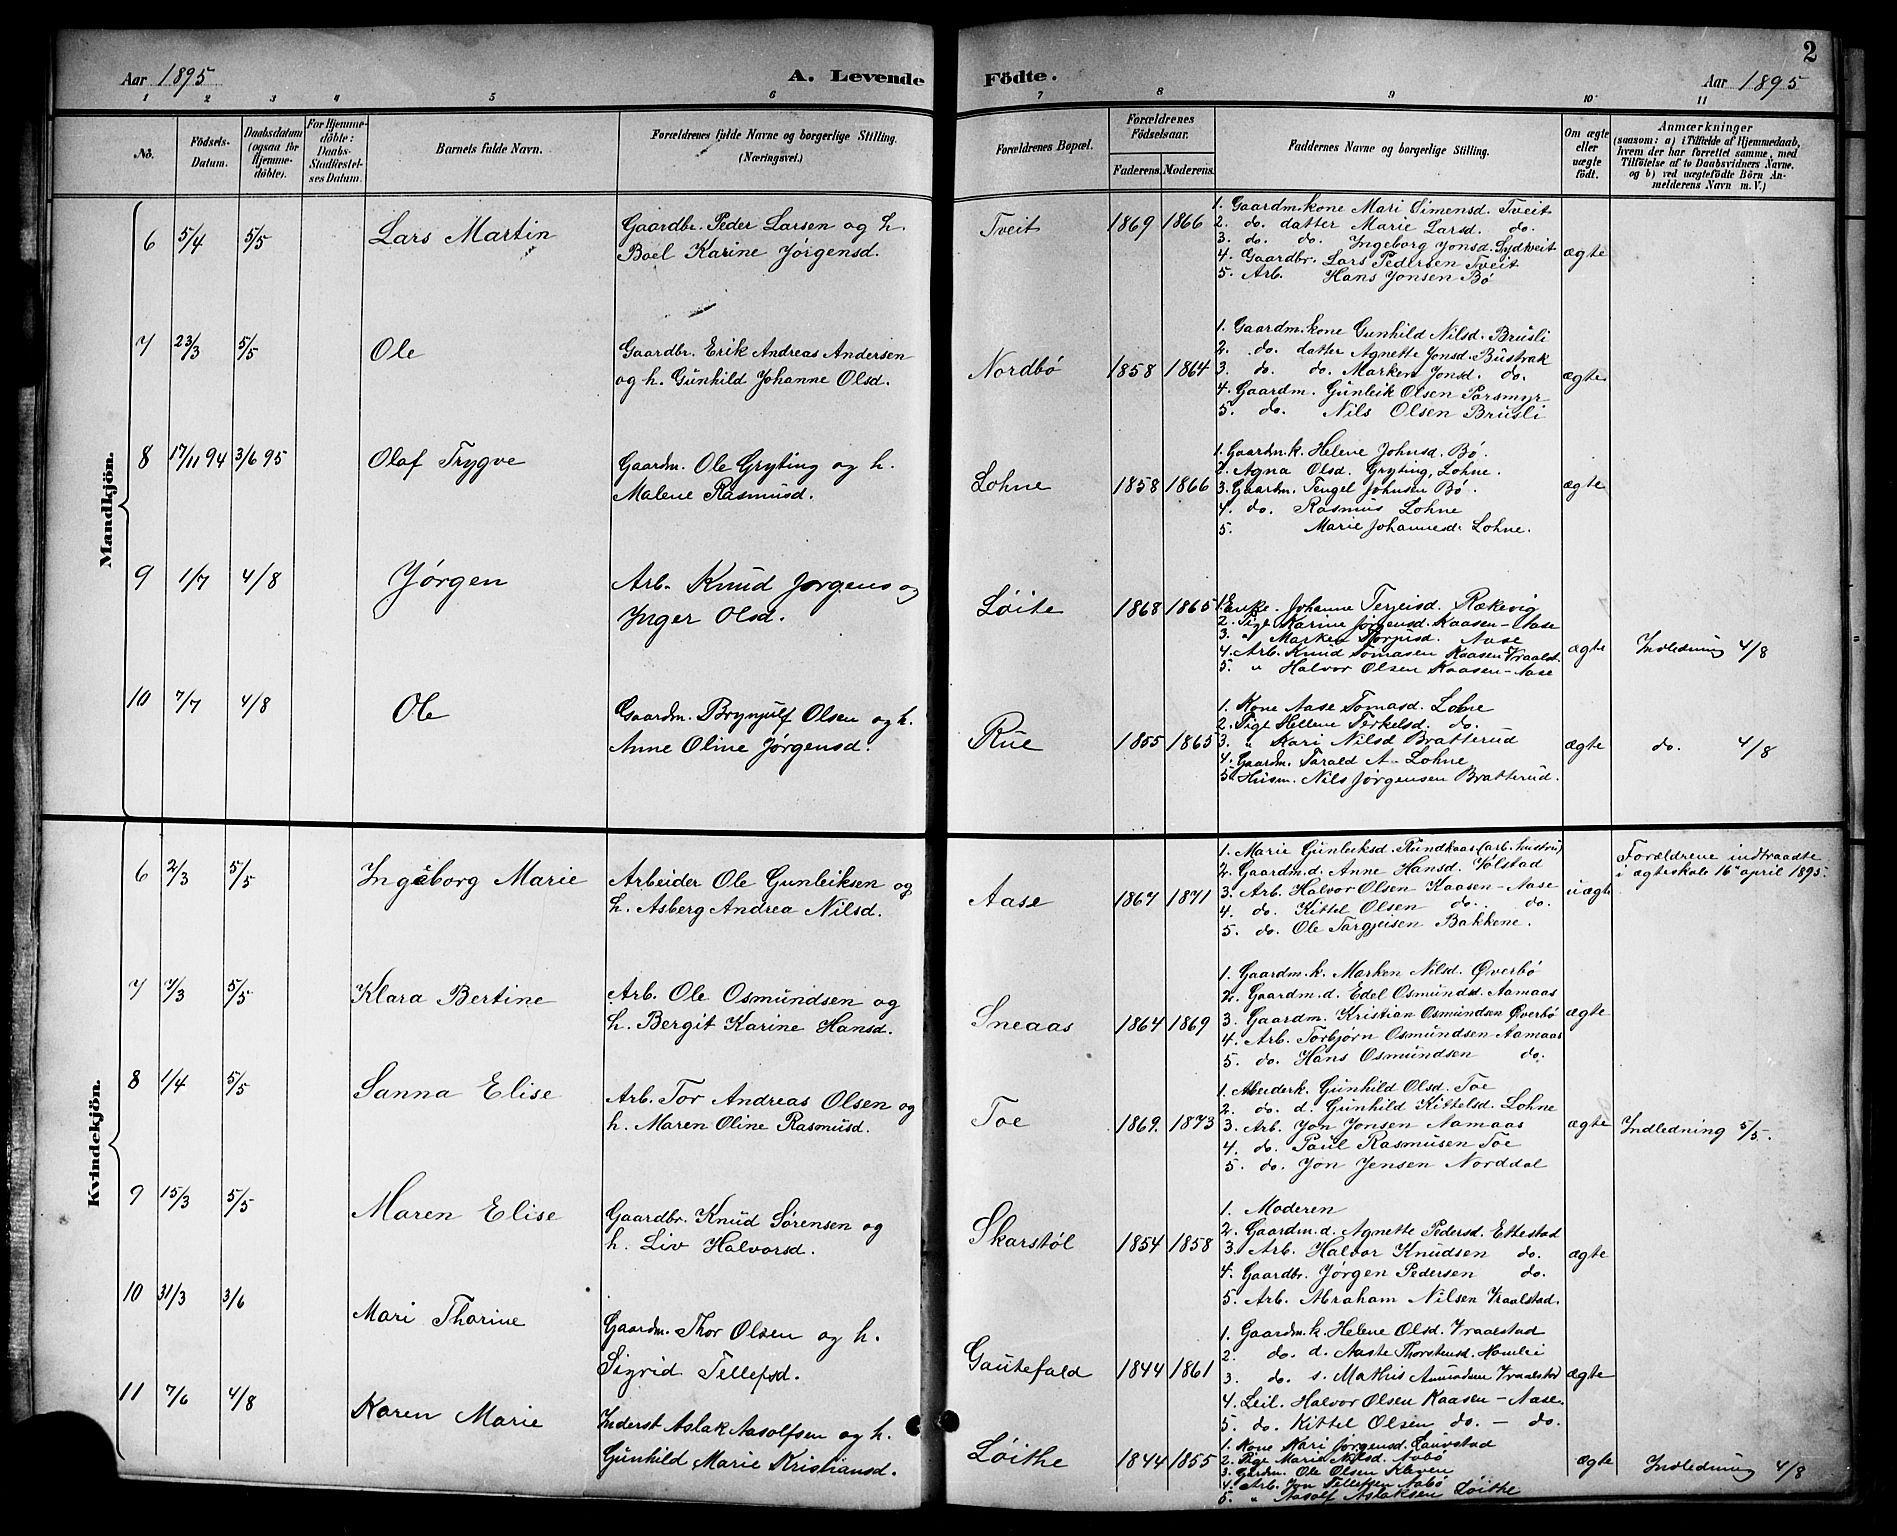 Aar 1895
A. Levende
Födte.
Aar 1895
2
1 2 3 4 5 6 7 8 9 10 11
No.
Födsels-Datum.
Daabsdatum (ogsaa for Hjemmedöbte).
For Hjemmedöbte: Daabs-Stadfestelses Datum.
Barnets fulde Navn.
Forældrenes fulde Navne og borgerlige Stilling. (Næringsvei.)
Forældrenes Bopæl.
Forældrenes Födselsaar.
Faderens. Moderens.
Faddernes Navne og borgerlige Stilling.
Om ægte eller uægte födt.
Anmærkninger
(saasom: a) i Tilfælde af Hjemmedaab, hvem der har forrettet samme, med Tilföielse af to Daabsvidners Navne, og b) ved uægtefödte Börn Anmelderens Navn m. V.)
Mandkjön.
6 5/4 5/5 Lars Martin
Gaardbr. Peder Larsen og h.
Boel Karine Jørgensd.
Tveit 1869 1866
1. Gaardm.kone Mari Simensd. Tveit
2. do. datter Marie Larsd. do.
3. do. do. Ingeborg Jonsd. Sydtveit
4. Gaardbr. Lars Pedersen Tveit
5. Arb. Hans Jonsen Bø
ægte
7 23/3 5/5 Ole
Gaardbr. Erik Andreas Andersen
og h. Gunhild Johanne Olsd.
Nordbø 1858 1864
1. Gaardm.kone Gunhild Nilsd. Brusli
2. do. datter Agnette Jonsd. Bustrak
3. do. do. Marken Jonsd. do.
4. Gaardm. Gunleik Olsen Porsmyr
5. do. Nils Olsen Brusli
ægte
8 17/11 94 3/6 95 Olaf Trygve
Gaardm. Ole Gryting og h.
Malene Rasmusd.
Lohne 1858 1866
1. Gaardm.k. Helene Johnsd. Bø.
2. Agna Olsd. Gryting, Lohne.
3. Gaardm. Tengel Johnsen Bø.
4. do. Rasmus Lohne
5. Marie Johannesd. Lohne.
ægte
9 1/7 4/8 Jørgen
Arb. Knud Jørgens og
Inger Olsd.
Løite 1868 1865
1. Enke. Johanne Terjeisd. Rækevig
2. Pige Karine Jørgensd. Kaasen-Aase
3. " Marken Aase
4. Arb. Knud Tomasen Kaasen Vraalst.
5. " Halvor Olsen Kaasen-Aase
ægte
Indledning 4/8
10 7/7 4/8 Ole
Gaardm. Brynjulf Olsen og h.
Anne Oline Jørgensd.
Rue 1855 1865
1. Kone Aase Tomasd. Lohne
2. Pige Hellene Terkelsd. do.
3. " Kari Nilsd Bratterud
4. Gaardm. Tarald A. Lohne
5. Husm. Nils Jørgensen Bratterud.
ægte
do. 4/8
Kvindekjön.
6 2/3 5/5 Ingeborg Marie
Arbeider Ole Gunleiksen og
h. Asberg Andrea Nilsd.
Aase 1867 1871
1. Marie Gunleiksd. Rundkaas (arb. hustru)
2. Gaardm.d. Anne Hansd. Vølstad
3. Arb. Halvor Olsen Kaasen-Aase
4. do. Kittel Olsen do. do.
5. do. Ole Targjeisen Bakkene.
uægte
Forældrene indtraadte
i ægteskab 16de april 1895.
7 7/3 5/5 Klara Bertine
Arb. Ole Osmundsen og
h. Bergit Karine Hansd.
Sneaas 1864 1869
1. Gaardm.k. Marken Nilsd. Øverbø
2. Gaardm.d. Edel Osmundsd. Aamaas
3. Gaardm. Kristian Osmundsen Øverbø
4. Arb. Torbjørn Osmundsen Aamaas
5. do. Hans Osmundsen do.
ægte
8 1/4 5/5 Sanna Elise
Arb. Tor Andreas Olsen og
h. Maren Oline Rasmusd.
Toe 1869. 1873
1. Arbeiderk. Gunhild Olsd. Toe
2. do. d. Gunhild Kittelsd. Lohne
3. Arb. Jon Jonsen Aamaas
4. do. Paul Rasmusen Toe
5. do. Jon Jensen Norddal
ægte
Indledning 5/5.
9 15/3 5/5 Maren Elise
Gaardbr. Knud Sørensen og
h. Liv Halvorsd.
Skarstøl 1854 1858
1. Moderen
2. Gaardm.d. Agnette Pedersd. Ettestad
3. Arb. Halvor Knudsen do.
4. Gaardbr. Jørgen Pedersen do.
5. Arb. Abraham Nilsen Vraalstad.
ægte
10 31/3 3/6 Mari Thorine
Gaardm. Thor Olsen og h.
Sigrid Tellefsd.
Gautefald 1844 1861
1. Gaardm.k. Helene Olsd. Vraalstad
2. do. d. Aaste Thorstensd. Homlei
3. do s. Mathis Amundsen Vraalstad
4. Leil. Halvor Olsen Kaasen-Aase.
5. do. Kittel Olsen do. - do.
ægte
11 7/6 4/8 Karen Marie
Inderst Aslak Aasolfsen og h.
Gunhild Marie Kristiansd.
Løithe 1844 1855
1. Kone Mari Jørgensd. Lauvstad
2. Pige Marie Nilsd. Aabø
3. Gardm. Ole Olsen Kleven
4. Arb. Jon Tellefsen Aabø
5. " Aasolf Aslaksen Løithe
ægte
Indledning 4/8